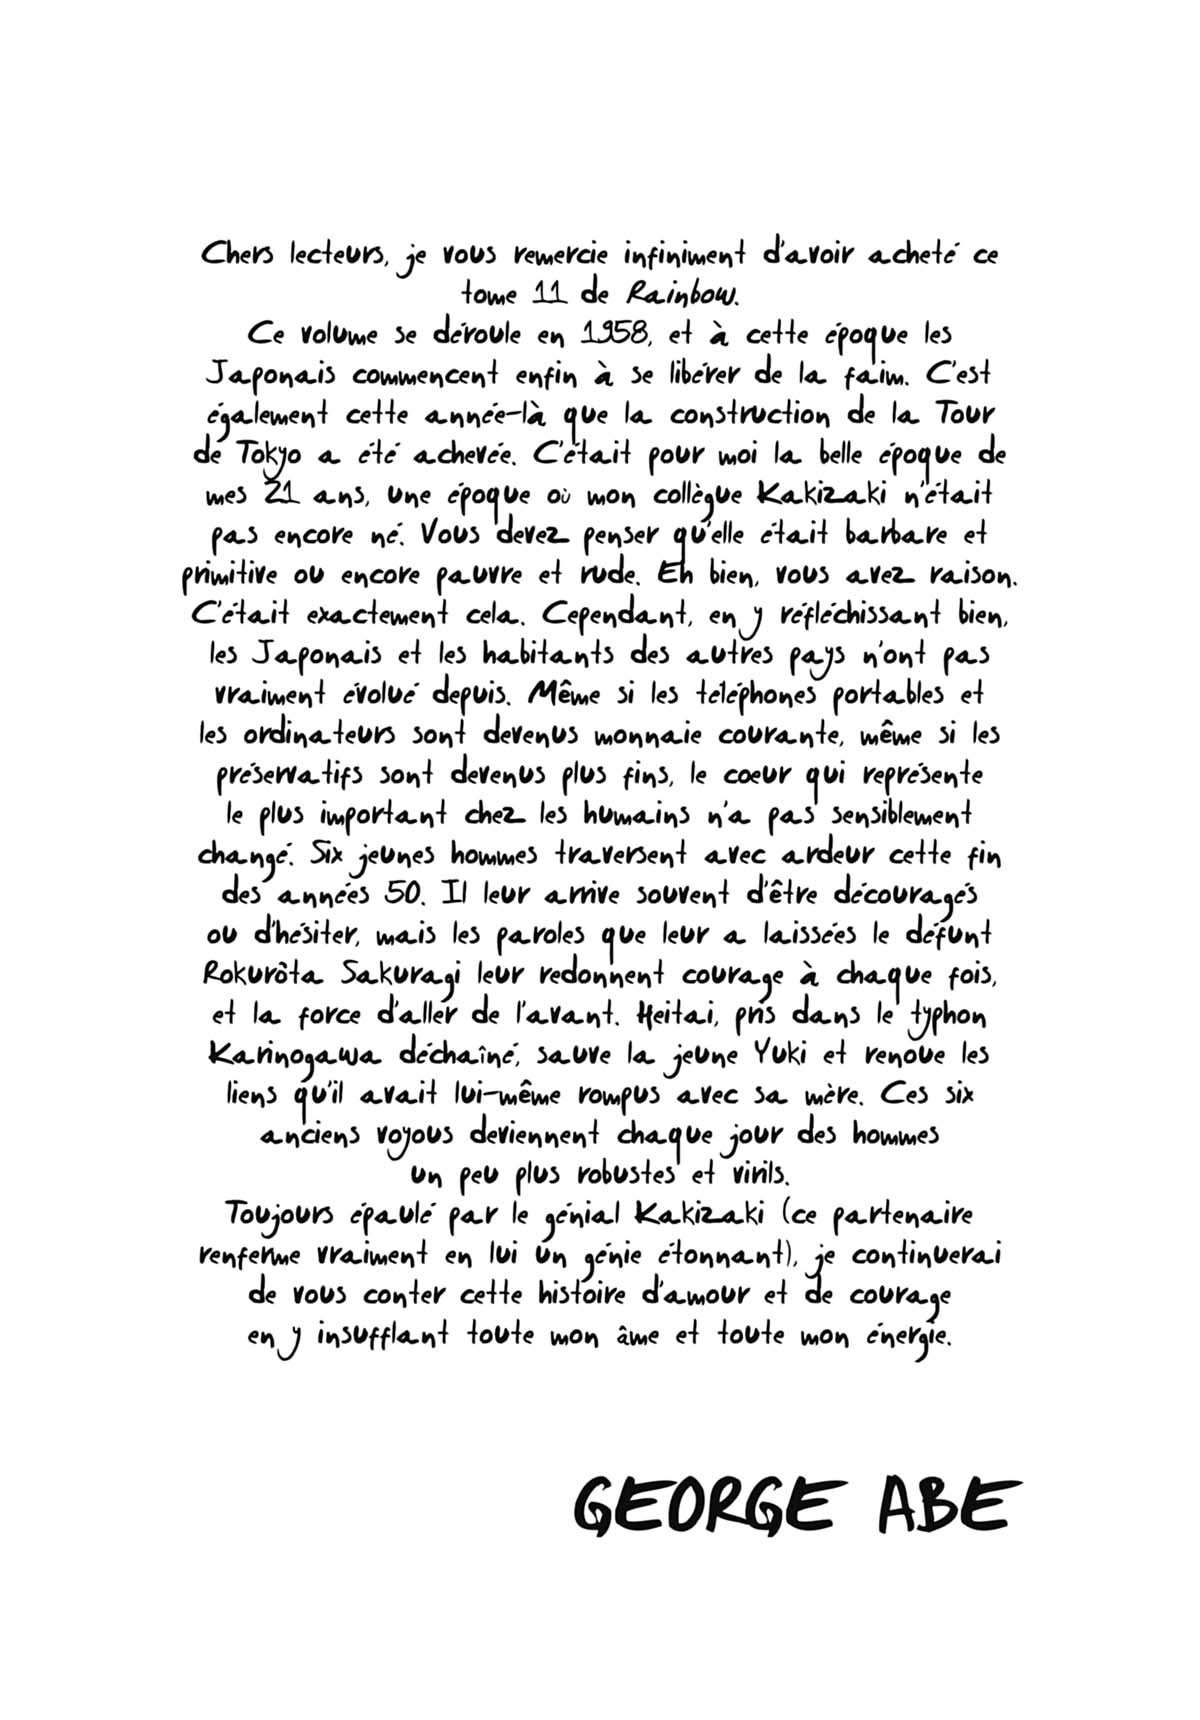 Chers lecteurs, je vous remercie infiniment d'avoir acheté ce
tome 11 de Rainbow.
Ce volume se déroule en 1958, et à cette époque les
Japonais commencent enfin à se libérer de la faim. C'est
également cette année-là que la construction de la Tour
de Tokyo a été achevée. C'était pour moi la belle époque de
mes 21 ans, une époque où mon collègue Kakizaki n'était
pas encore né. Vous devez penser qu'elle était barbare et
primitive ou encore pauvre et rude. Eh bien, vous avez raison.
C'était exactement cela. Cependant, en y réfléchissant bien,
les Japonais et les habitants des autres pays n'ont pas
vraiment évolué depuis. Même si les téléphones portables et
les ordinateurs sont devenus monnaie courante, même si les
préservatifs sont devenus plus fins, le coeur qui représente
le plus important chez les humains n'a pas sensiblement
changé. Six jeunes hommes traversent avec ardeur cette fin
des années 50. Il leur arrive souvent d'être découragés
ou d'hésiter, mais les paroles que leur a laissées le défunt
Rokurôta Sakuragi leur redonnent courage à chaque fois,
et la force d'aller de l'avant. Heitai, pris dans le typhon
Karinogawa déchaîné, sauve la jeune Yuki et renoue les
liens qu'il avait lui-même rompus avec sa mère. Ces six
anciens voyous deviennent chaque jour des hommes
un peu plus robustes et virils.
Toujours épaulé par le génial Kakizaki (ce partenaire
renferme vraiment en lui un génie étonnant), je continuerai
de vous conter cette histoire d'amour et de courage
en y insufflant toute mon âme et toute mon énergie.
GEORGE ABE